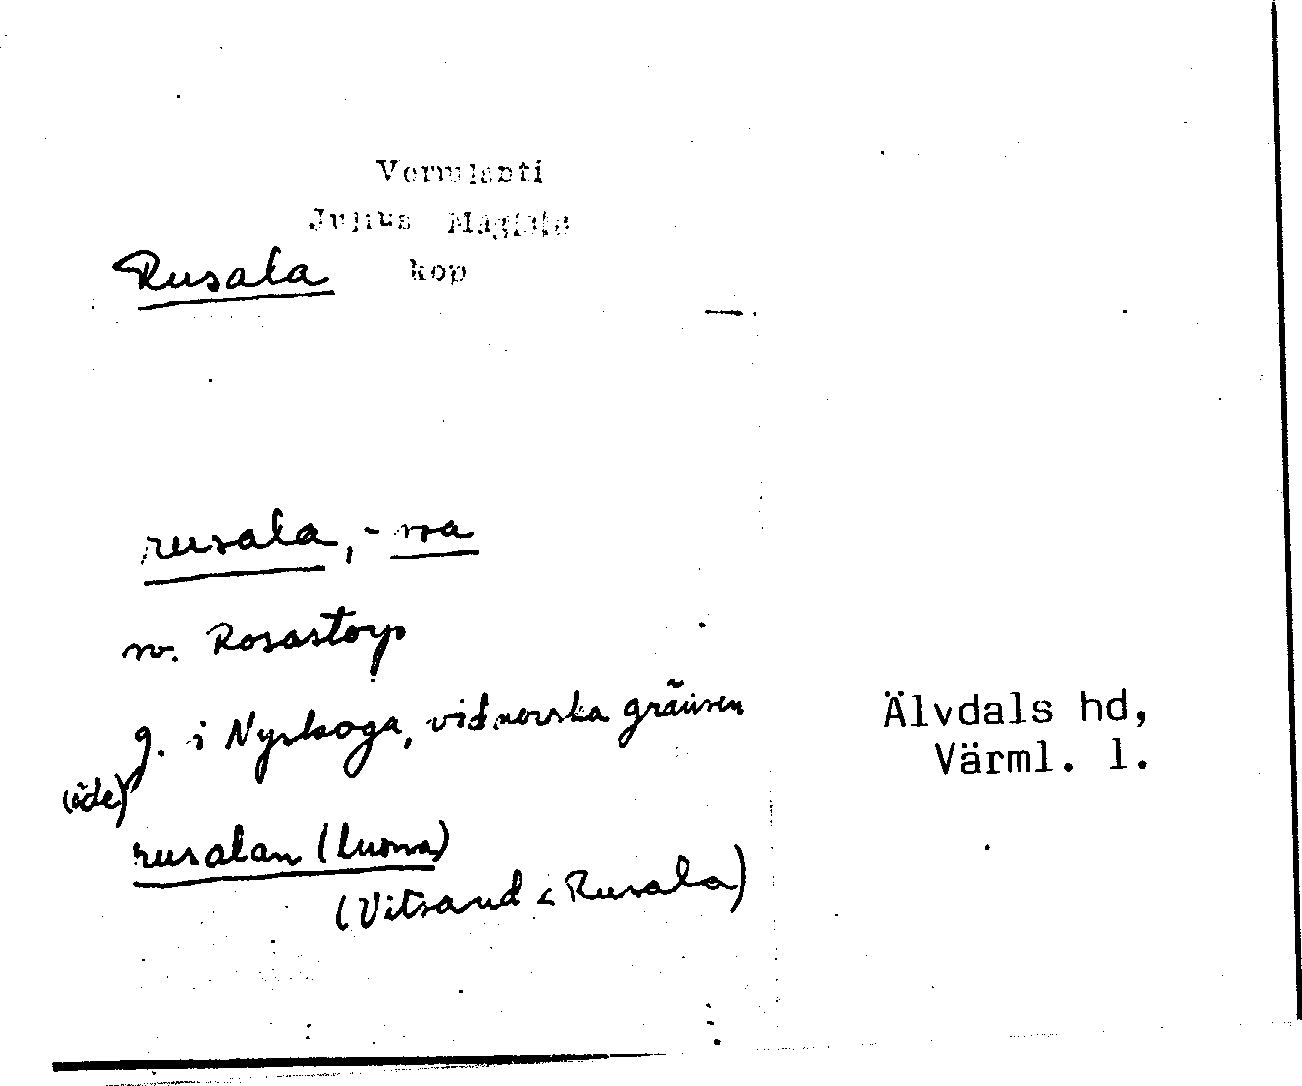 Vermlanti
Julius Mägiste
Rusala kop
rusala, -ssa
rv. Rosastorp
g. i Nyskoga, vid norska gränsen
(öde)
rusalan (luona)
(Vitsand < Rusala)
Älvdals hd,
Värml. l.